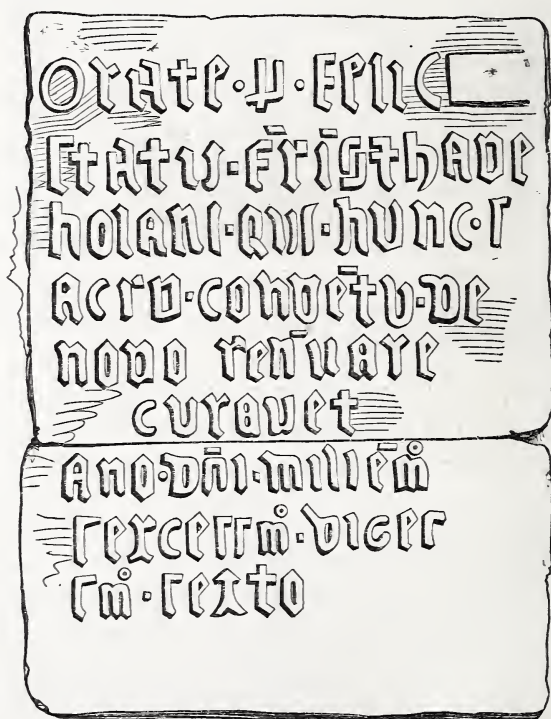 Orate·p·felic
statu·Fr̄is·thade
holani·qui·hunc·s
acru·convētu·de
novo ren̄uare
curavet
Ano·Dn̄i·millēm̊
sexcessm̊·viges
sm̊·sexto